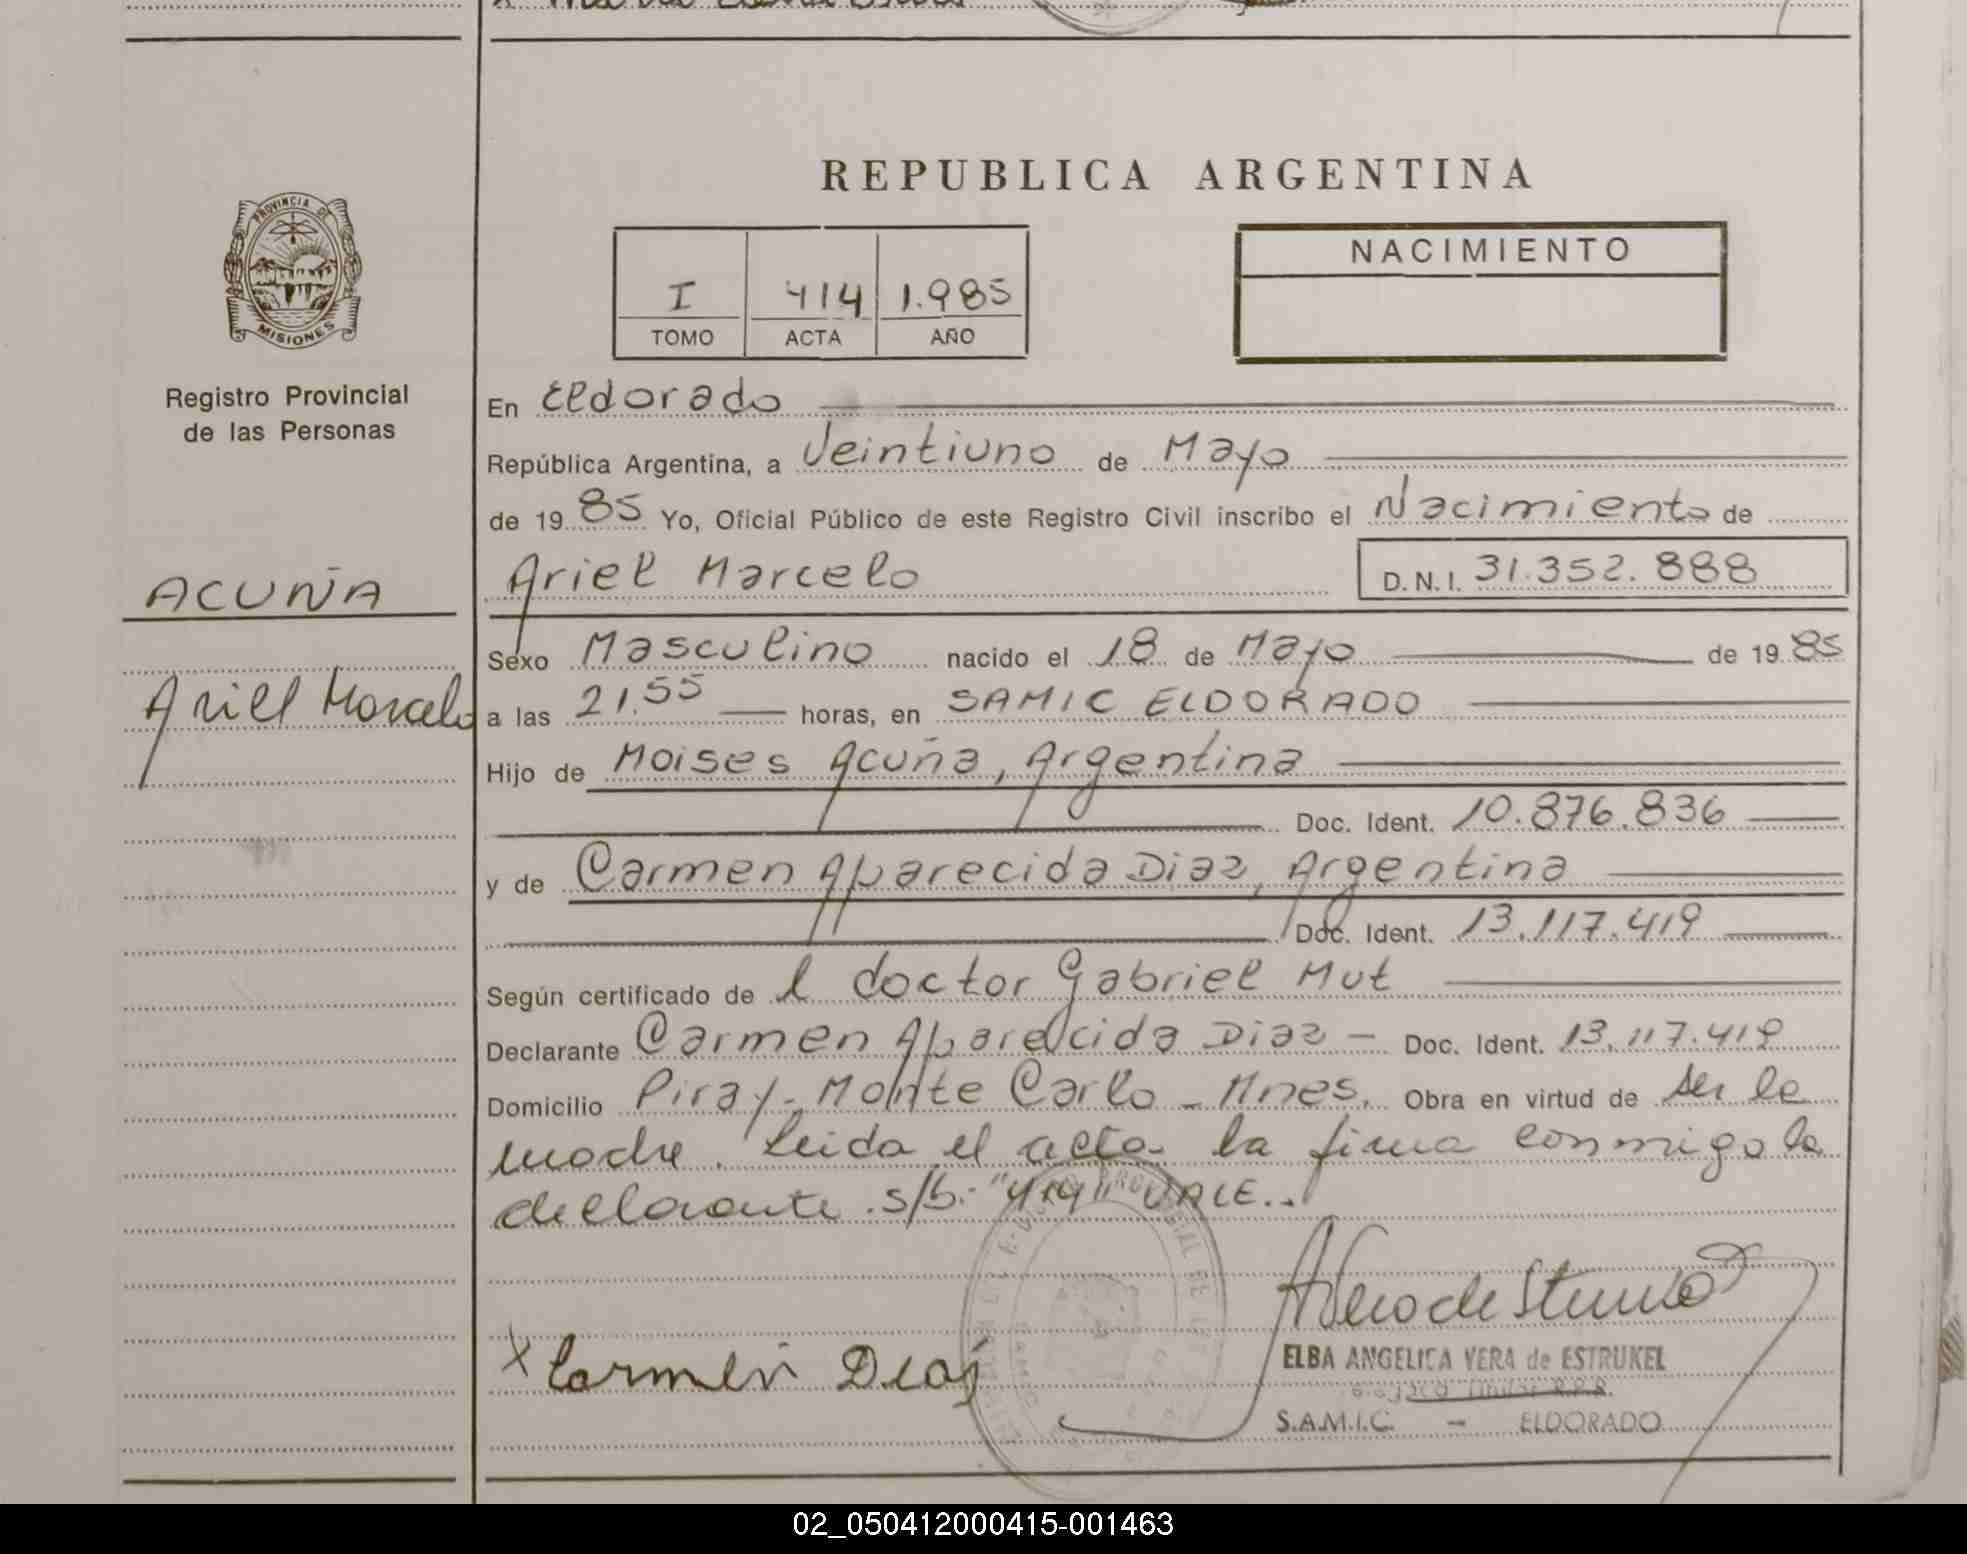 REPUBLICA ARGENTINA
PROVINCIA DE
MISIONES
Registro Provincial
de las Personas
ACUÑA
Ariel Marcelo
I 414 1.985
TOMO ACTA AÑO
NACIMIENTO
En Eldorado
República Argentina, a Veintiuno de Mayo
de 1985 Yo, Oficial Público de este Registro Civil inscribo el Nacimiento de
Ariel Marcelo D.N.I. 31.352.888
Sexo Masculino nacido el 18 de Mayo de 1985
a las 21.55 horas, en SAMIC ELDORADO
Hijo de Moises Acuña, Argentina
Doc. Ident. 10.876.836
y de Carmen Aparecida Diaz, Argentina
Doc. Ident. 13.117.419
Según certificado de l doctor Gabriel Mut
Declarante Carmen Aparecida Diaz - Doc. Ident. 13.117.419
Domicilio Piray - Monte Carlo - Mnes. Obra en virtud de ser la
madre. Leida el acta la firma conmigo la
declarante. s/b. "414" VALE..
x Carmen Diaz
ELBA ANGELICA VERA de ESTRUKEL
S.A.M.I.C. - ELDORADO
02_050412000415-001463